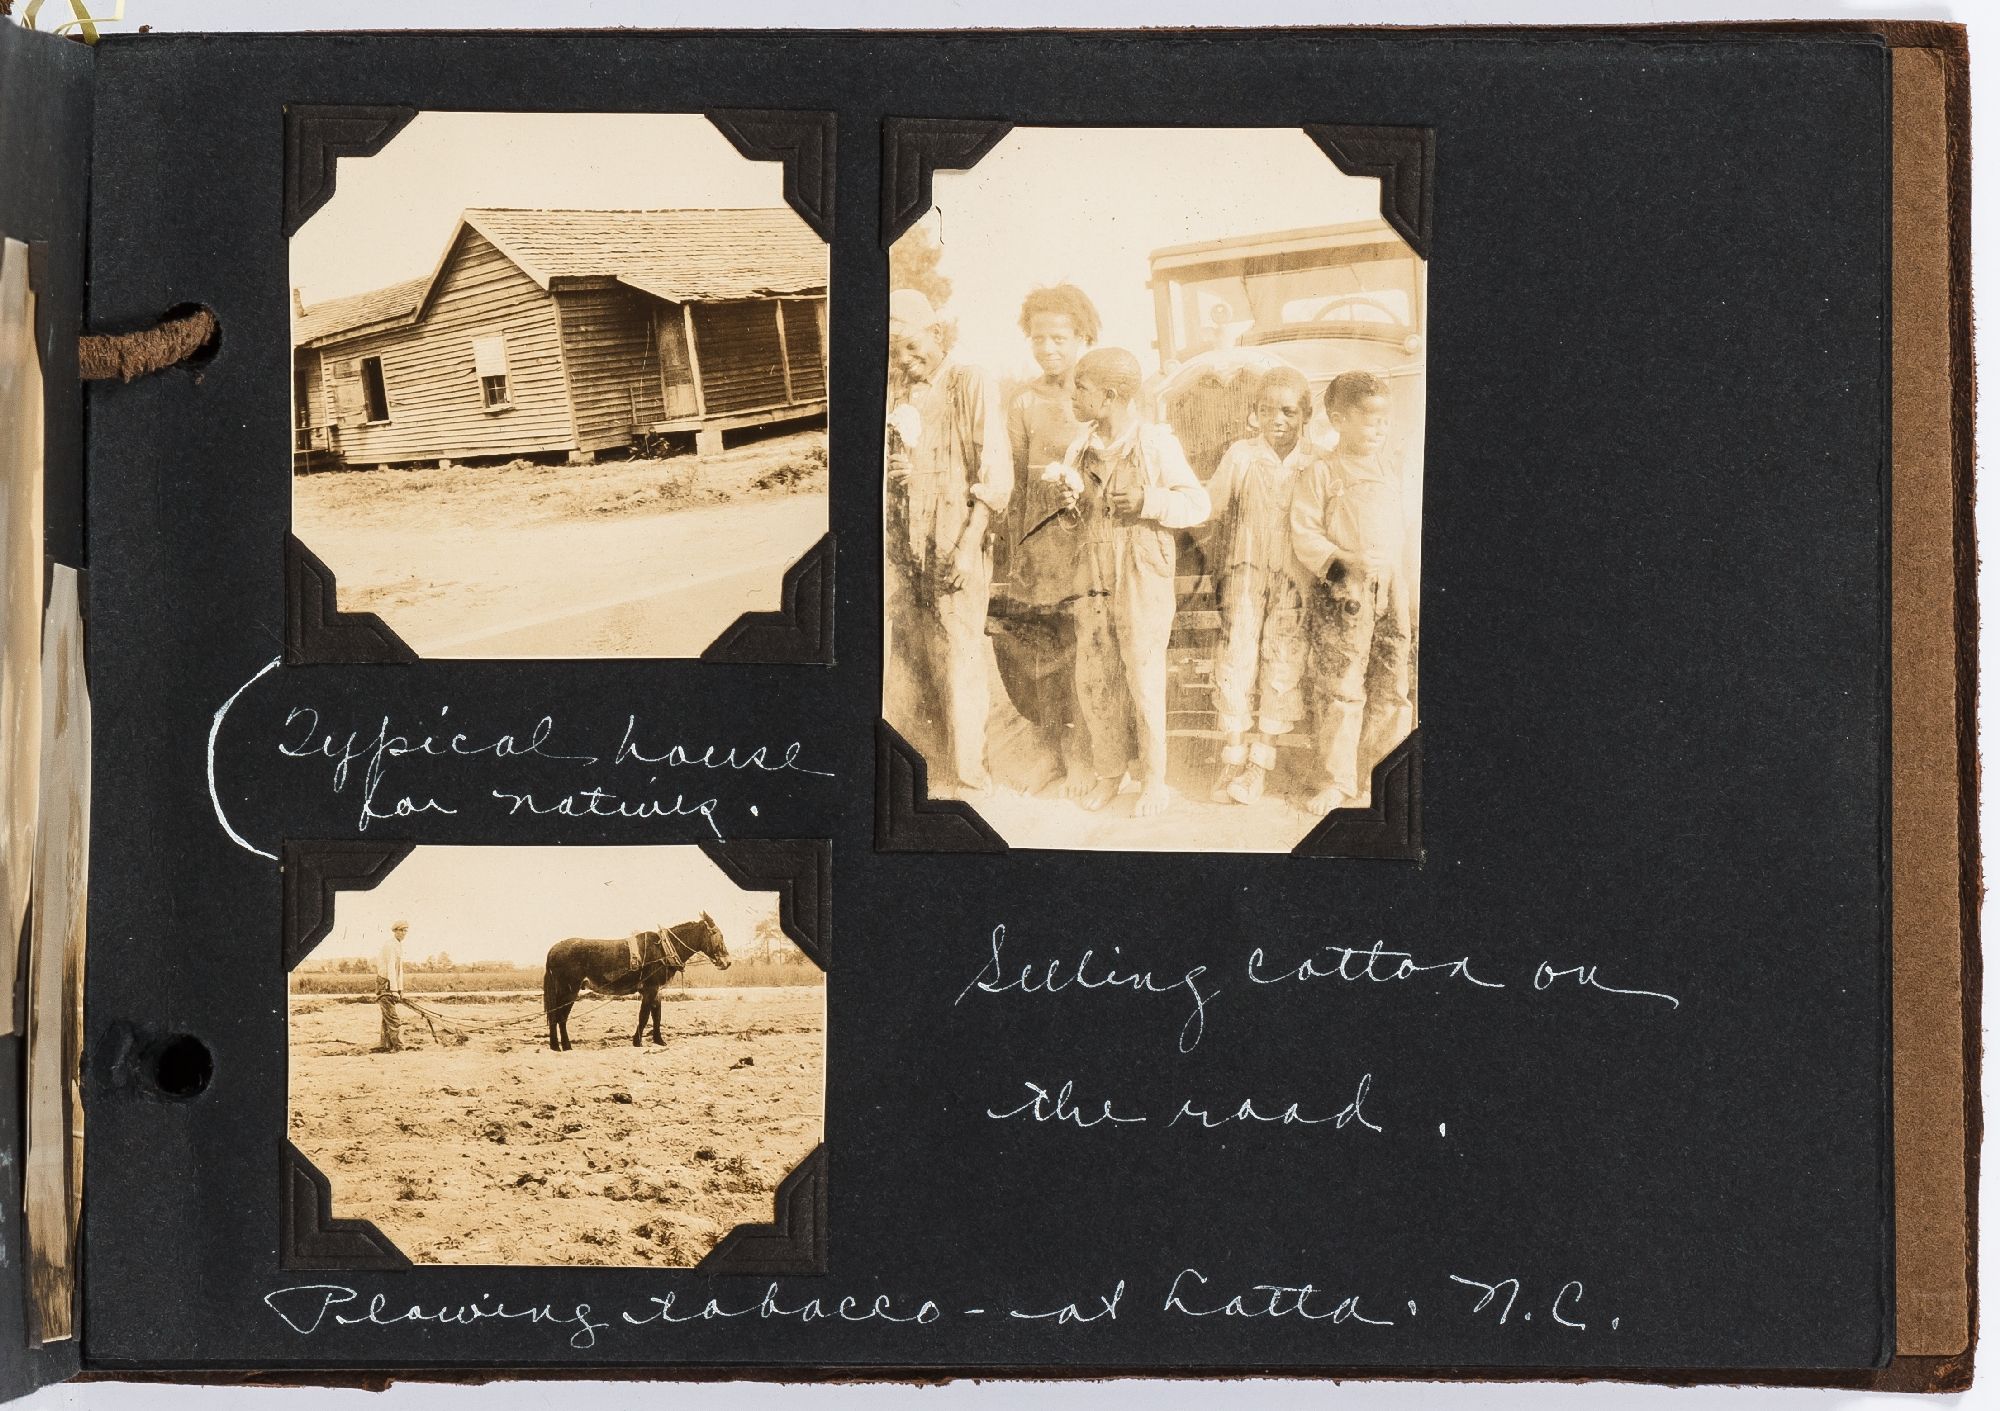 Typical house
for natives.
Selling cotton on
the road.
Plowing tobacco - at Latta. N.C.